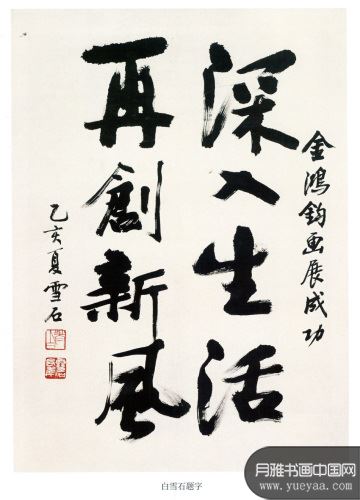 金鴻鈞画展成功
深入生活
再創新風
乙亥夏雪石
白雪石题字
月雅书画中国网
www.yueyaa.com